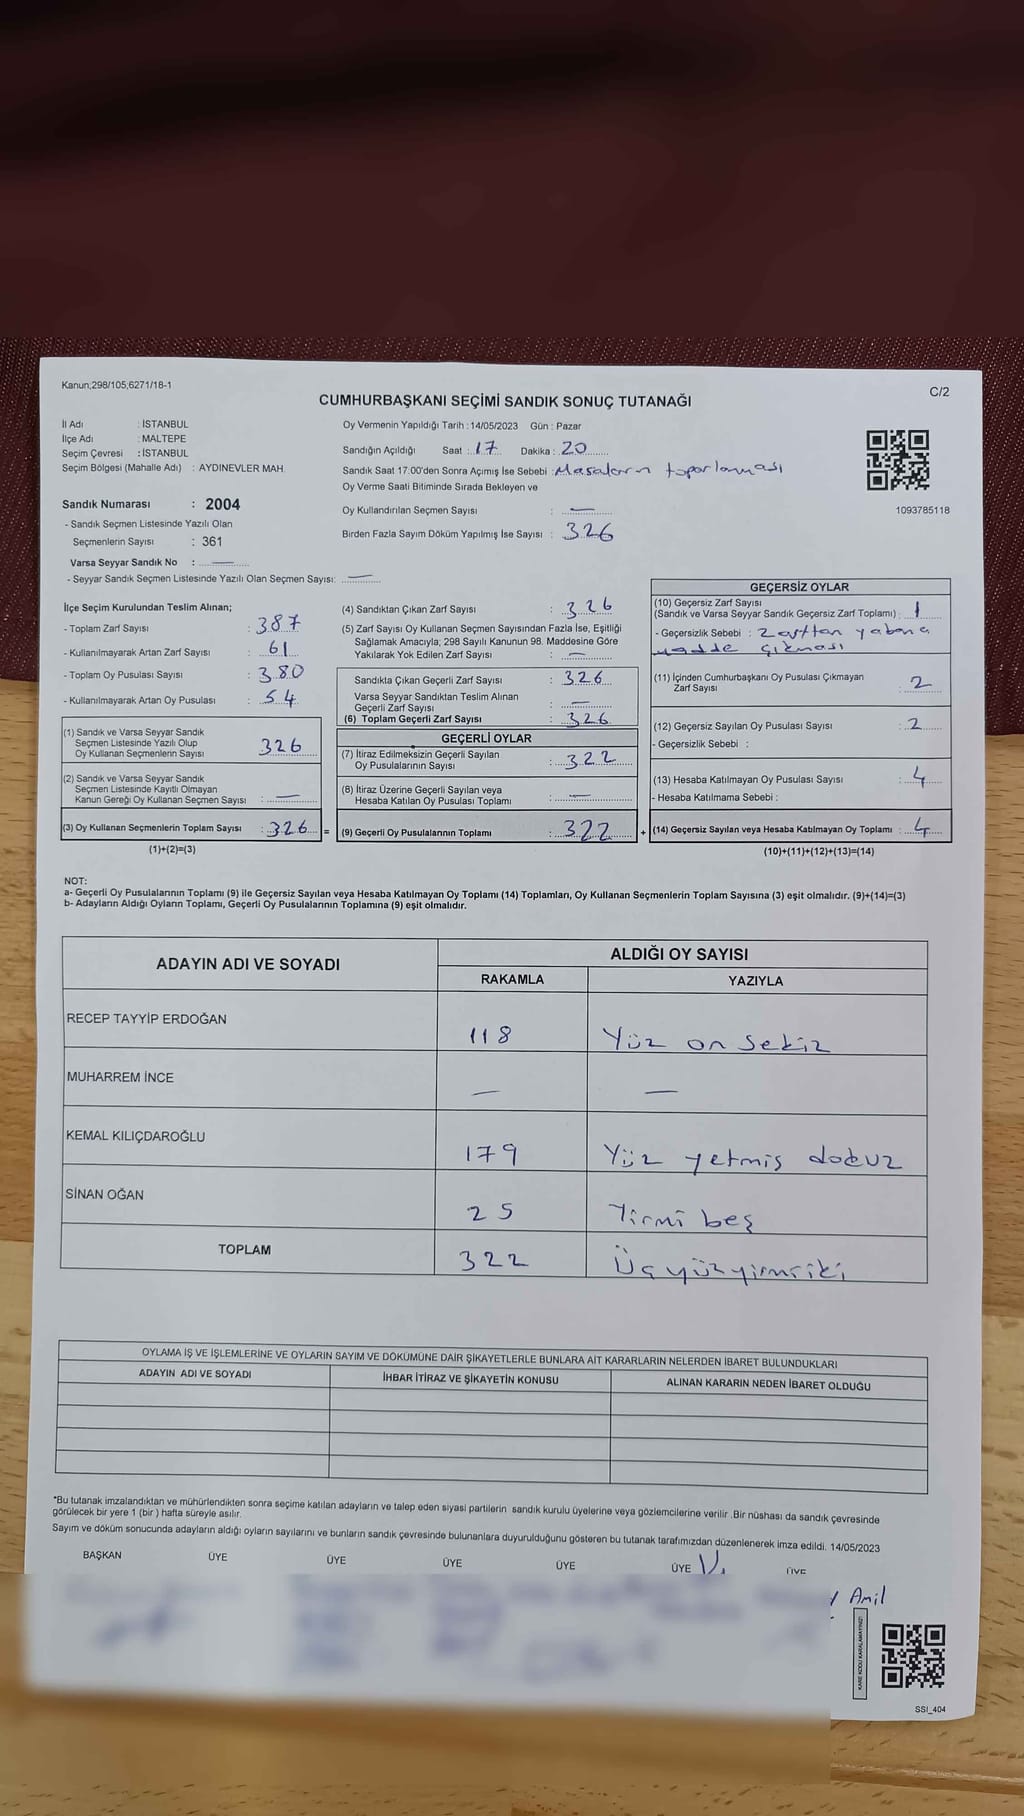 Kanun;298/105;6271/18-1
C/2
CUMHURBAŞKANI SEÇİMİ SANDIK SONUÇ TUTANAĞI
İl Adı : İSTANBUL
İlçe Adı : MALTEPE
Seçim Çevresi : İSTANBUL
Seçim Bölgesi (Mahalle Adı) : AYDINEVLER MAH.
Oy Vermenin Yapıldığı Tarih : 14/05/2023 Gün : Pazar
Sandığın Açıldığı Saat : 17 Dakika : 20
Sandık Saat 17.00'den Sonra Açımış İse Sebebi : Masaların toparlanması
Oy Verme Saati Bitiminde Sırada Bekleyen ve
Oy Kullandırılan Seçmen Sayısı : —
Birden Fazla Sayım Döküm Yapılmış İse Sayısı : 326
1093785118
Sandık Numarası : 2004
- Sandık Seçmen Listesinde Yazılı Olan
Seçmenlerin Sayısı : 361
Varsa Seyyar Sandık No : —
- Seyyar Sandık Seçmen Listesinde Yazılı Olan Seçmen Sayısı: —
İlçe Seçim Kurulundan Teslim Alınan;
- Toplam Zarf Sayısı : 387
- Kullanılmayarak Artan Zarf Sayısı : 61
- Toplam Oy Pusulası Sayısı : 380
- Kullanılmayarak Artan Oy Pusulası : 54
(1) Sandık ve Varsa Seyyar Sandık
Seçmen Listesinde Yazılı Olup
Oy Kullanan Seçmenlerin Sayısı 326
(2) Sandık ve Varsa Seyyar Sandık
Seçmen Listesinde Kayıtlı Olmayan
Kanun Gereği Oy Kullanan Seçmen Sayısı : —
(3) Oy Kullanan Seçmenlerin Toplam Sayısı : 326 =
(1)+(2)=(3)
(4) Sandıktan Çıkan Zarf Sayısı : 326
(5) Zarf Sayısı Oy Kullanan Seçmen Sayısından Fazla İse, Eşitliği
Sağlamak Amacıyla, 298 Sayılı Kanunun 98. Maddesine Göre
Yakılarak Yok Edilen Zarf Sayısı : —
Sandıkta Çıkan Geçerli Zarf Sayısı : 326
Varsa Seyyar Sandıktan Teslim Alınan
Geçerli Zarf Sayısı : —
(6) Toplam Geçerli Zarf Sayısı : 326
GEÇERLİ OYLAR
(7) İtiraz Edilmeksizin Geçerli Sayılan
Oy Pusulalarının Sayısı : 322
(8) İtiraz Üzerine Geçerli Sayılan veya
Hesaba Katılan Oy Pusulası Toplamı : —
(9) Geçerli Oy Pusulalarının Toplamı : 322 +
GEÇERSİZ OYLAR
(10) Geçersiz Zarf Sayısı
(Sandık ve Varsa Seyyar Sandık Geçersiz Zarf Toplamı) : 1
- Geçersizlik Sebebi : Zarftan yabancı
madde çıkması
(11) İçinden Cumhurbaşkanı Oy Pusulası Çıkmayan
Zarf Sayısı : 2
(12) Geçersiz Sayılan Oy Pusulası Sayısı : 2
- Geçersizlik Sebebi :
(13) Hesaba Katılmayan Oy Pusulası Sayısı : 4
- Hesaba Katılmama Sebebi :
(14) Geçersiz Sayılan veya Hesaba Katılmayan Oy Toplamı : 4
(10)+(11)+(12)+(13)=(14)
NOT:
a- Geçerli Oy Pusulalarının Toplamı (9) ile Geçersiz Sayılan veya Hesaba Katılmayan Oy Toplamı (14) Toplamları, Oy Kullanan Seçmenlerin Toplam Sayısına (3) eşit olmalıdır. (9)+(14)=(3)
b- Adayların Aldığı Oyların Toplamı, Geçerli Oy Pusulalarının Toplamına (9) eşit olmalıdır.
ADAYIN ADI VE SOYADI ALDIĞI OY SAYISI
RAKAMLA YAZIYLA
RECEP TAYYİP ERDOĞAN 118 Yüz on sekiz
MUHARREM İNCE — —
KEMAL KILIÇDAROĞLU 179 Yüz yetmiş dokuz
SİNAN OĞAN 25 Yirmi beş
TOPLAM 322 Üçyüzyirmiiki
OYLAMA İŞ VE İŞLEMLERİNE VE OYLARIN SAYIM VE DÖKÜMÜNE DAİR ŞİKAYETLERLE BUNLARA AİT KARARLARIN NELERDEN İBARET BULUNDUKLARI
ADAYIN ADI VE SOYADI İHBAR İTİRAZ VE ŞİKAYETİN KONUSU ALINAN KARARIN NEDEN İBARET OLDUĞU
*Bu tutanak imzalandıktan ve mühürlendikten sonra seçime katılan adayların ve talep eden siyasi partilerin sandık kurulu üyelerine veya gözlemcilerine verilir .Bir nüshası da sandık çevresinde
görülecek bir yere 1 (bir ) hafta süreyle asılır.
Sayım ve döküm sonucunda adayların aldığı oyların sayılarını ve bunların sandık çevresinde bulunanlara duyurulduğunu gösteren bu tutanak tarafımızdan düzenlenerek imza edildi. 14/05/2023
BAŞKAN ÜYE ÜYE ÜYE ÜYE ÜYE ÜYE
Amil
KARE KODU KARALAMAYINIZ!
SSI_404